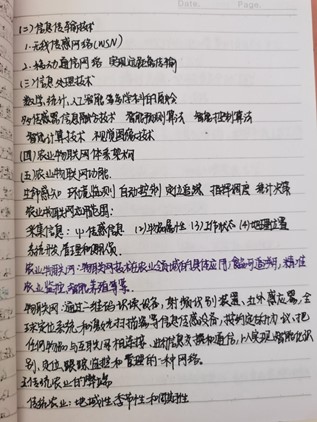 Date. Page.
(二)信息传输技术
1.无线传感网络(WSN)
2.移动通信网络 实现远距离传输
(三)信息处理技术
数学、统计、人工智能等多学科的融合
多传感器信息融合技术 智能预测算法 智能控制算法
智能计算技术 视觉图像技术
(四)农业物联网体系架构
(五)农业物联网功能.
生命感知 环境监测 自动控制 定位追踪 指挥调度 统计决策
农业物联网应用范围:
采集信息: 4)传感信息 (2)物品属性 (3)工作状态 (4)地理位置
系统开发、管理和服务.
农业物联网:物联网技术在农业全领域的具体应用,食品可追溯,精准
农业监控,智能养殖等.
物联网:通过二维码识读设备,射频识别装置、红外感应器,全
球定位系统和激光扫描器等信息传感设备,按约定的协议,把
任何物品与互联网相连接,进行信息交换和通信,以实现智能化识
别、定位、跟踪、监控和管理的一种网络.
传统农业的弊端
传统农业:地域性、季节性和周期性